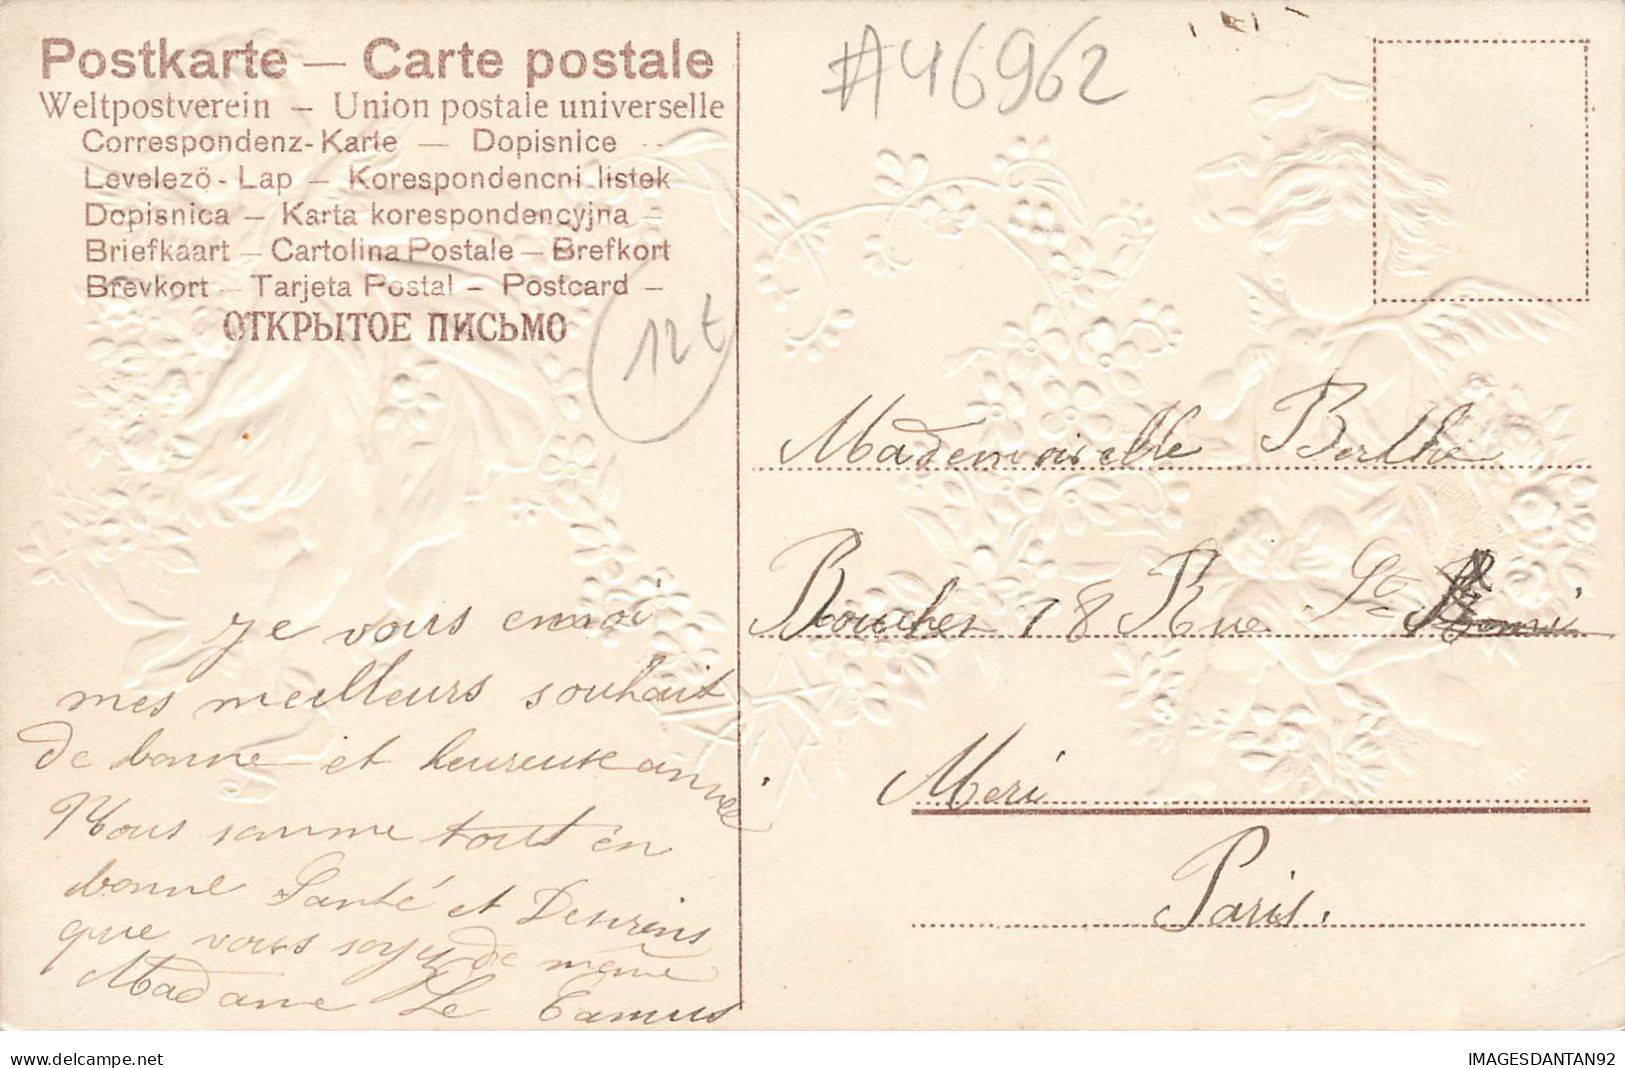 Postkarte — Carte postale
Weltpostverein — Union postale universelle
Correspondenz-Karte — Dopisnice --
Levelezö-Lap — Korespondencni listek
Dopisnica — Karta korespondencyjna —
Briefkaart — Cartolina Postale — Brefkort
Brevkort — Tarjeta Postal — Postcard —
ОТКРЫТОЕ ПИСЬМО
12t
#46962
Je vous envoi
mes meilleurs souhait
de bonne et heureuse année
Nous somme tout en
bonne Santé et Desirens
que vous soyez de même
Madame Le Camus
Mademoiselle Berthe
Boucher 18 Rue Ste
Meri
Paris.
delcampe.net
IMAGESDANTAN92